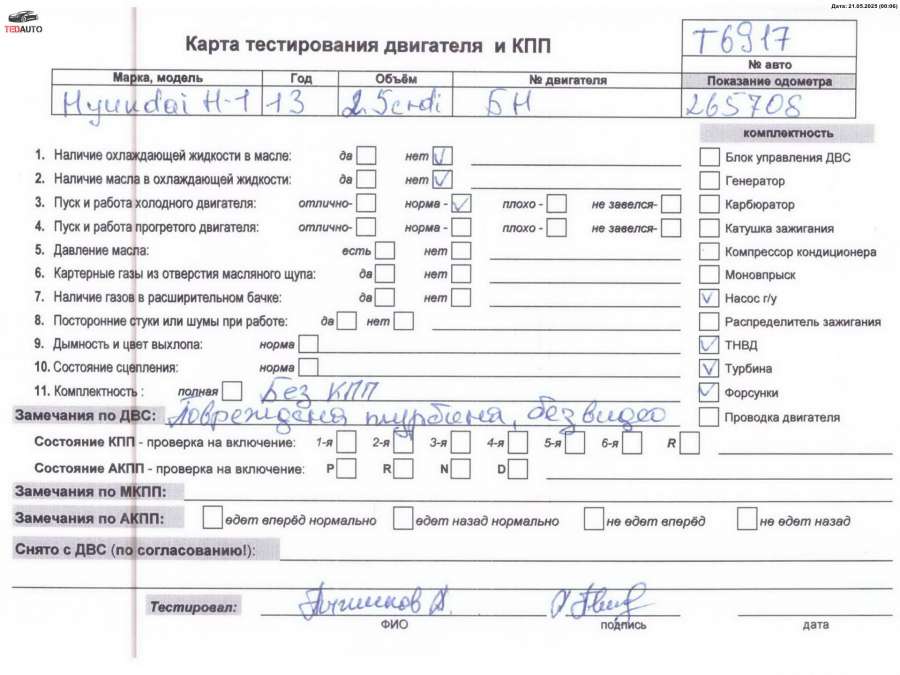 Дата: 21.05.2025 (00:06)
TEDAUTO
Карта тестирования двигателя и КПП
Т6917
№ авто
Марка, модель Год Объём № двигателя Показание одометра
Hyundai H-1 13 2.5crdi БН 265708
комплектность
1. Наличие охлаждающей жидкости в масле: да нет Блок управления ДВС
2. Наличие масла в охлаждающей жидкости: да нет Генератор
3. Пуск и работа холодного двигателя: отлично- норма - плохо - не завелся- Карбюратор
4. Пуск и работа прогретого двигателя: отлично- норма - плохо - не завелся- Катушка зажигания
5. Давление масла: есть нет Компрессор кондиционера
6. Картерные газы из отверстия масляного щупа: да нет Моновпрыск
7. Наличие газов в расширительном бачке: да нет Насос г/у
8. Посторонние стуки или шумы при работе: да нет Распределитель зажигания
9. Дымность и цвет выхлопа: норма ТНВД
10. Состояние сцепления: норма Турбина
11. Комплектность : полная Без КПП Форсунки
Замечания по ДВС: Повреждена турбина, без видео Проводка двигателя
Состояние КПП - проверка на включение: 1-я 2-я 3-я 4-я 5-я 6-я R
Состояние АКПП - проверка на включение: P R N D
Замечания по МКПП:
Замечания по АКПП: едет вперёд нормально едет назад нормально не едет вперёд не едет назад
Снято с ДВС (по согласованию!):
Тестировал:
ФИО подпись дата